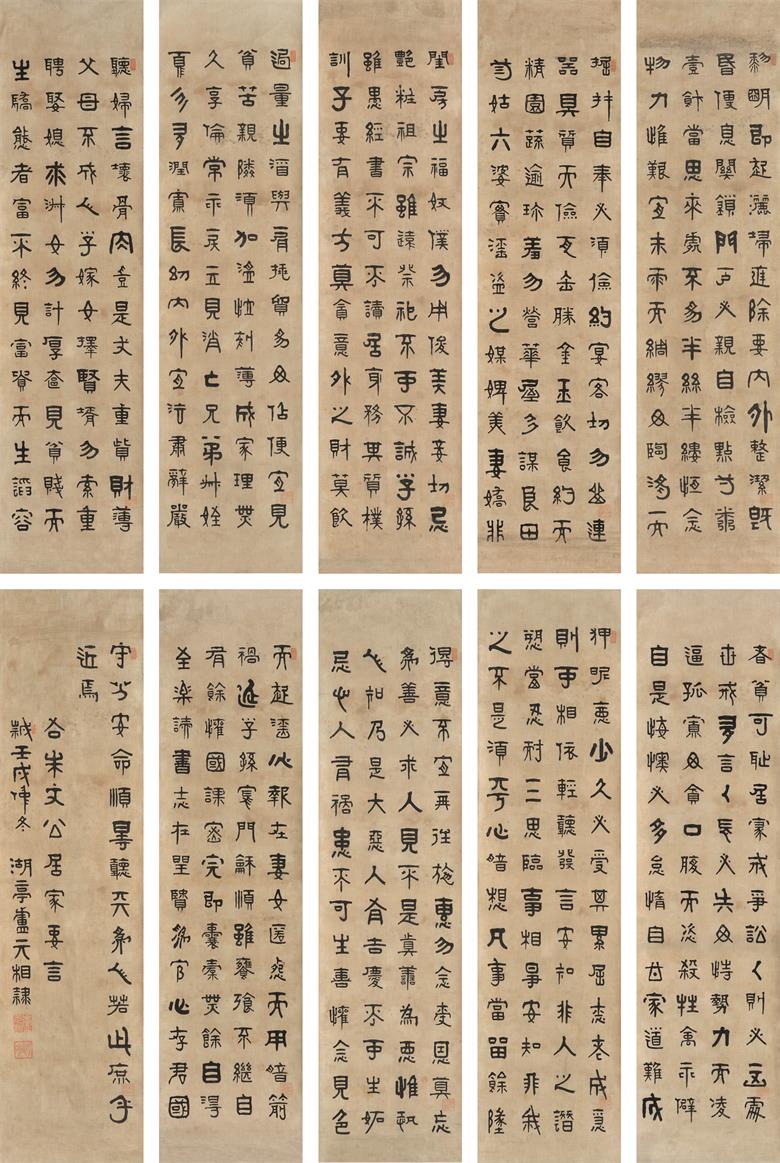 黎明即起灑埽庭除要內外整潔既
昏便息關鎖門戶必親自檢點一粥
壹飰當思來處不易半絲半縷恆念
物力惟艱宜未雨而綢繆毋臨渴而
掘井自奉必須儉約宴客切勿留連
器具質而儉瓦缶勝金玉飲食約而
精園蔬逾珍羞勿營華屋勿謀良田
三姑六婆實淫盜之媒婢美妻嬌非
閨房之福奴僕勿用俊美妻妾切忌
艷粧祖宗雖遠祭祀不可不誠子孫
雖愚經書不可不讀居身務其質樸
訓子要有義方莫貪意外之財莫飲
過量之酒與肩挑貿易毋佔便宜見
貧苦親鄰須加溫恤刻薄成家理無
久享倫常乖戾立見消亡兄弟叔姪
分多潤寡長幼內外宜法肅辭嚴
聽婦言壞骨肉豈是丈夫重貲財薄
父母不成人子嫁女擇賢壻勿索重
聘娶媳求淑女勿計厚奩見貧賤而
生驕態者富不終見富貴而生諂容
者貧可恥居家戒爭訟訟則必凶處
世戒多言言長必失毋恃勢力而凌
逼孤寡毋貪口腹而恣殺牲禽乖僻
自是悔懊必多怠惰自甘家道難成
狎昵惡少久必受其累屈志老成急
則可相依輕聽發言安知非人之譖
愬當忍耐三思臨事相爭安知非我
之不是須平心暗想凡事當留餘墜
得意不宜再往施惠勿念受恩莫忘
為善必求人見不是真善為惡惟恐
人知乃是大惡人有喜慶不可生妬
忌心人有禍患不可生喜懽念見色
而起淫心報在妻女匿怨而用暗箭
禍延子孫家門穌順雖饔飧不繼自
有餘懽國課密完即囊橐無餘自得
至樂讀書志在聖賢為官心存君國
守分安命順時聽天為人若此庶乎
近焉
右朱文公居家要言
壬戌仲冬 湖亭盧元相隸